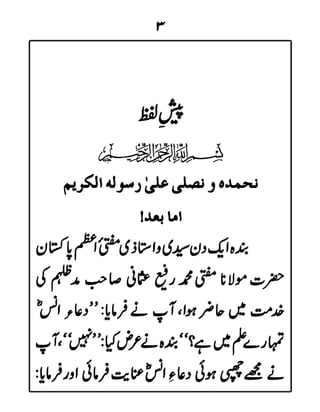 ۳
پیشِ لفظ
بسم اللہ الرحمن الرحیم
نحمدہ و نصلی علیٰ رسولہ الکریم
اما بعد!
بندہ ایک دن سیدی و استاذی مفتیٔ اعظم پاکستان
حضرت مولانا مفتی محمد رفیع عثمانی صاحب مدظلہم کی
خدمت میں حاضر ہوا، آپ نے فرمایا: ’’دعاءِ انسؓ
تمہارے علم میں ہے؟‘‘ بندہ نے عرض کیا: ’’نہیں‘‘، آپ
نے مجھے چھپی ہوئی دعاءِ انسؓ عنایت فرمائی اور فرمایا: